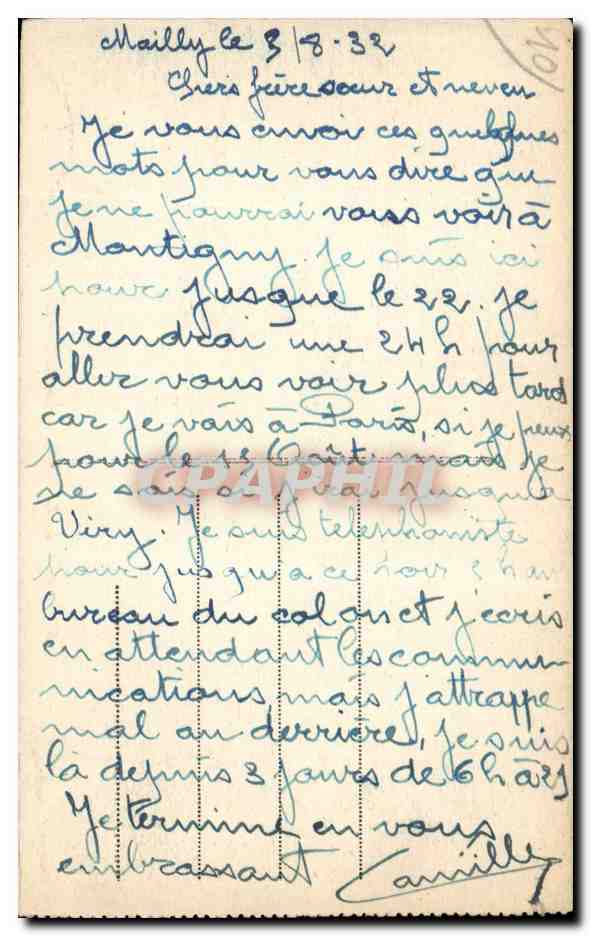 Mailly le 3/8-32
Chers frère soeur et neveu
Je vous envoi ces quelques
mots pour vous dire que
je ne pourrai vous voir à
Montigny. Je suis ici
pour jusque le 22. je
prendrai une 24 h pour
aller vous voir plus tard
car je vais à Paris, si je peux
pour le 15 Août mais je
ne sais si j'irai jusqu'à
Viry. Je suis telephoniste
pour jusqu'a ce soir 9 h au
bureau du colon et j'écris
en attendant les commu-
nications, mais j'attrappe
mal au derrière, je suis
là depuis 3 jours de 6h à 21
Je termine en vous
embrassant Camille
CPARAMA